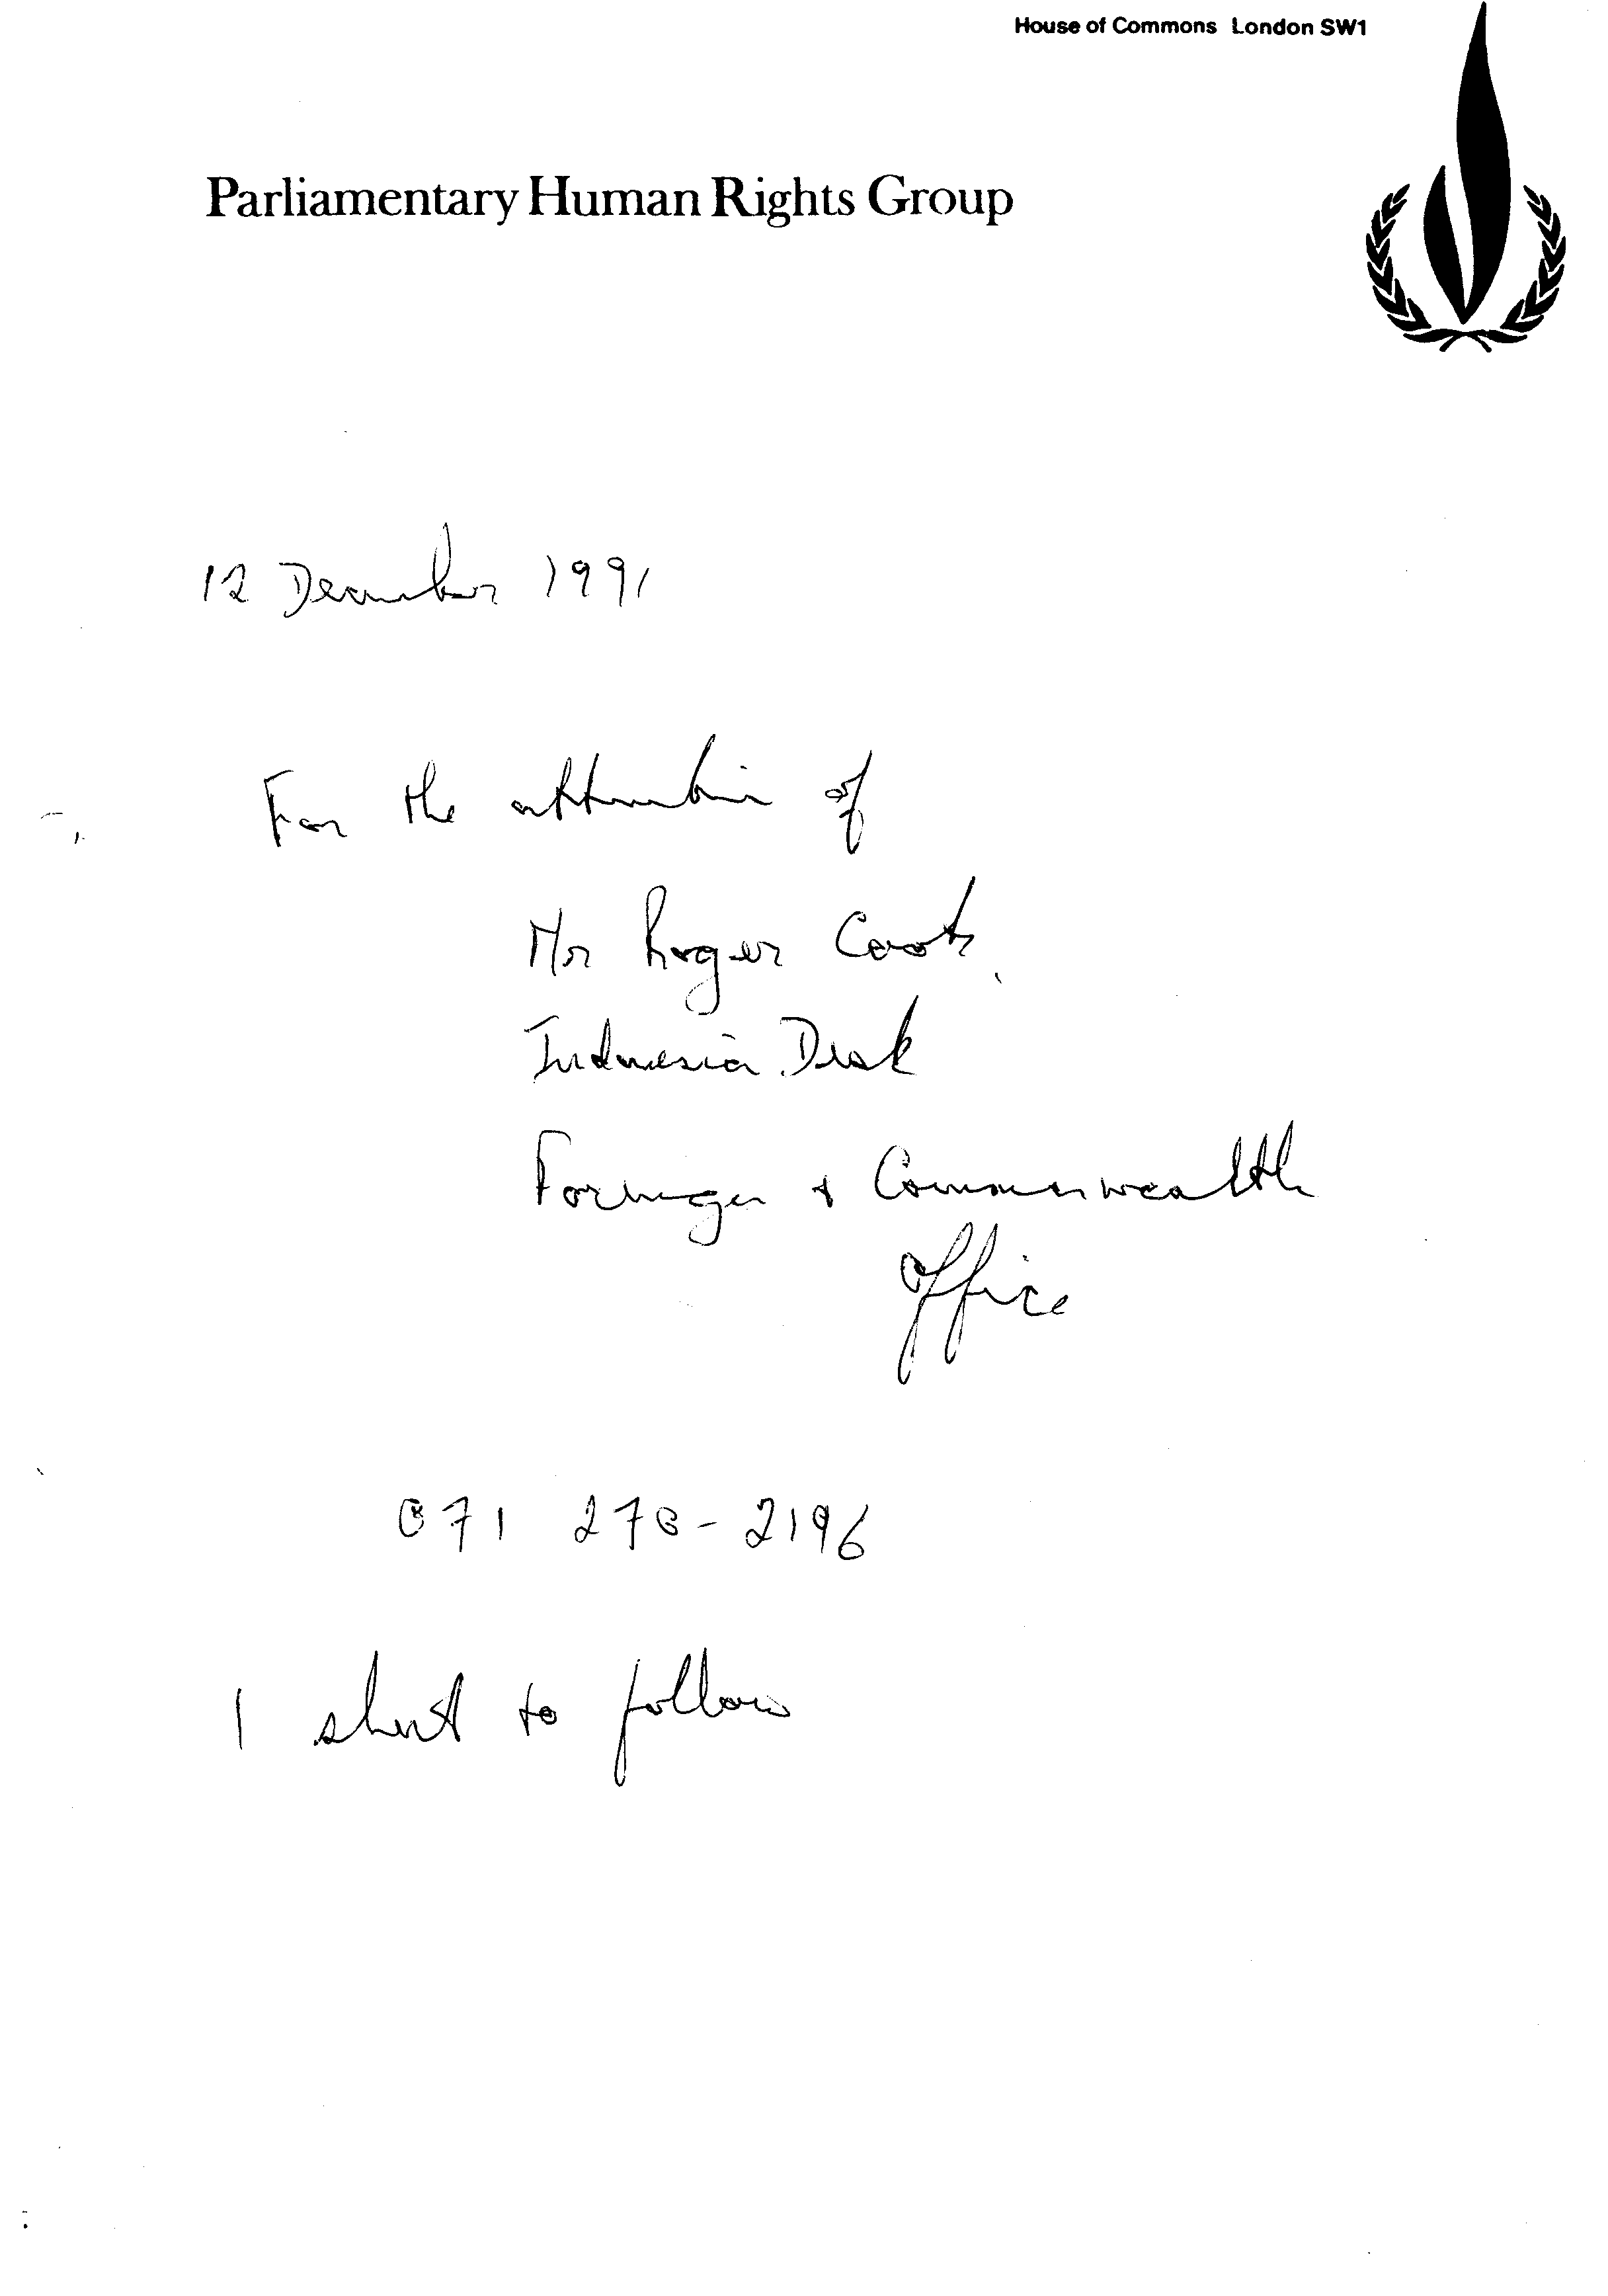 House of Commons London SW1
Parliamentary Human Rights Group
12 December 1991
For the attention of
Mr Roger
Indonesia Desk
Foreign + Commonwealth
Office
071 270-2196
1 sheet to follow